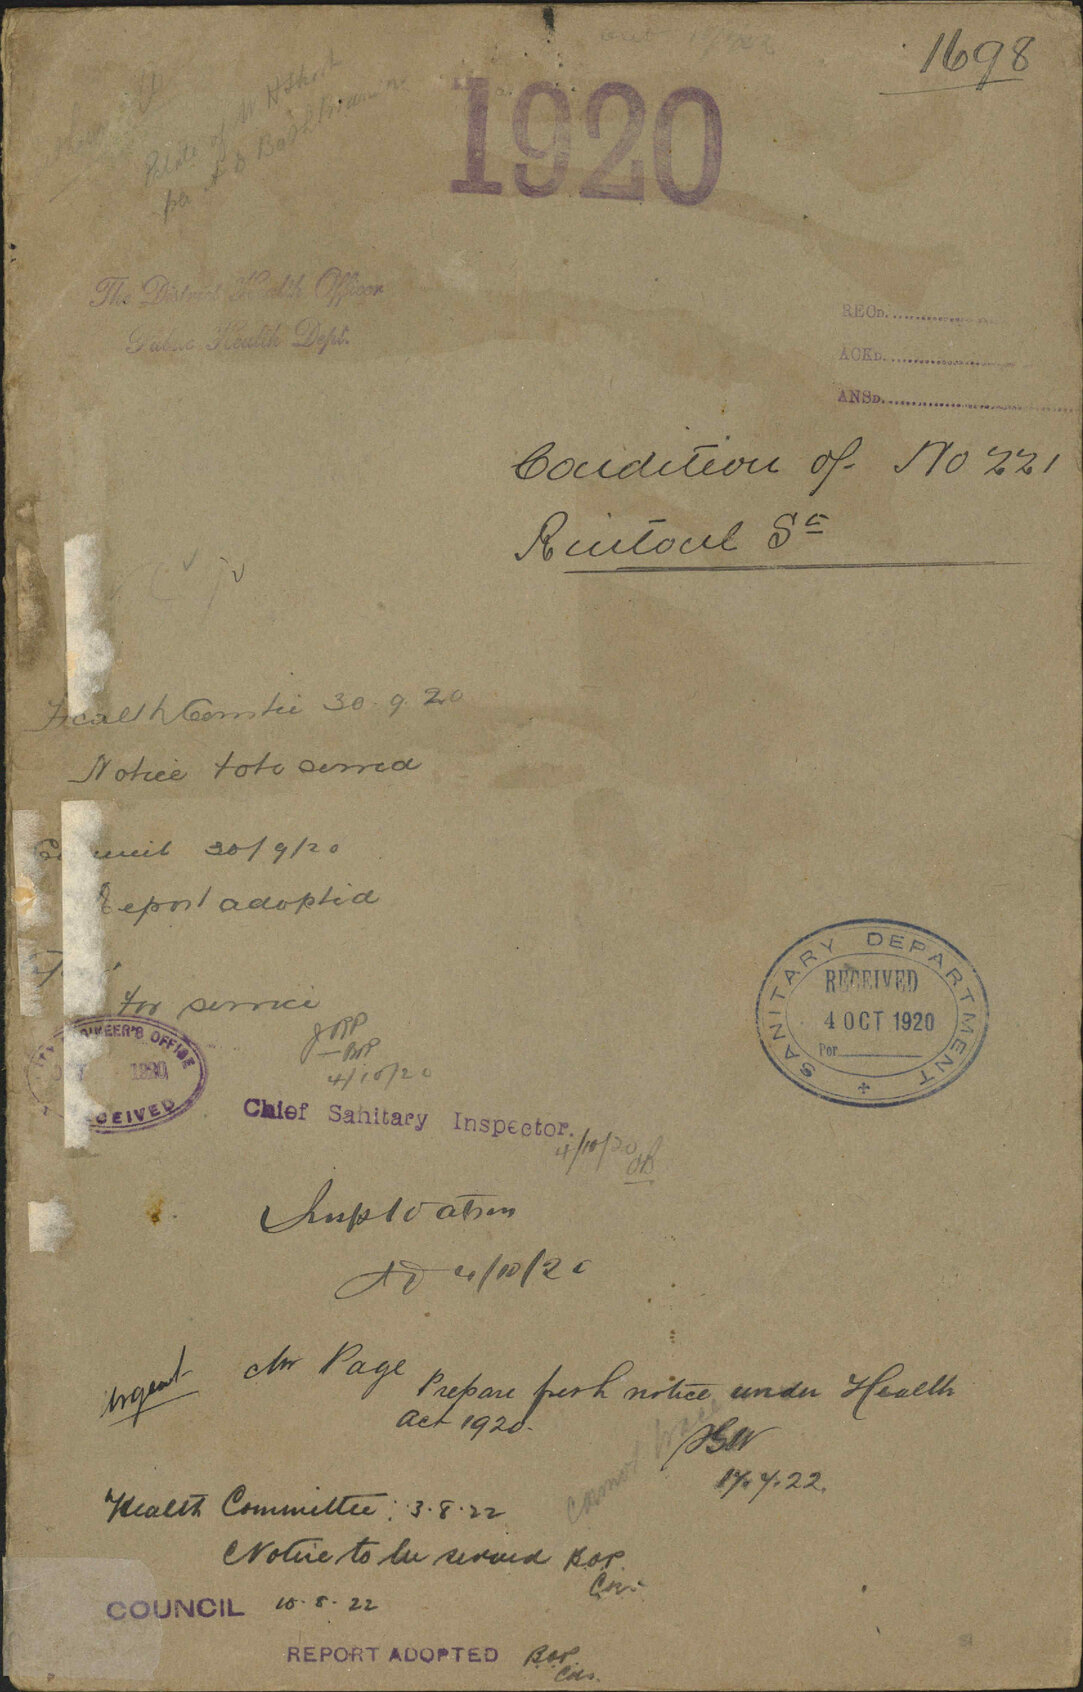 1698
1920
Estate of W H Short
per A D
The District Health Officer
Public Health Dept.
RECD.
ACKD.
ANSD.
Condition of No 221
Rintoul St
Health Comtee 30.9.20
Notice to be served
Council 30/9/20
Report adopted
for service
JRP
4/10/20
ENGINEER'S OFFICE
1920
RECEIVED
SANITARY DEPARTMENT
RECEIVED
4 OCT 1920
Per
Chief Sanitary Inspector.
4/10/20
4/10/20
Urgent
Mr Page
Prepare fresh notice under Health
Act 1920.
17.7.22.
Health Committee: 3.8.22
Notice to be served
COUNCIL 10.8.22
REPORT ADOPTED